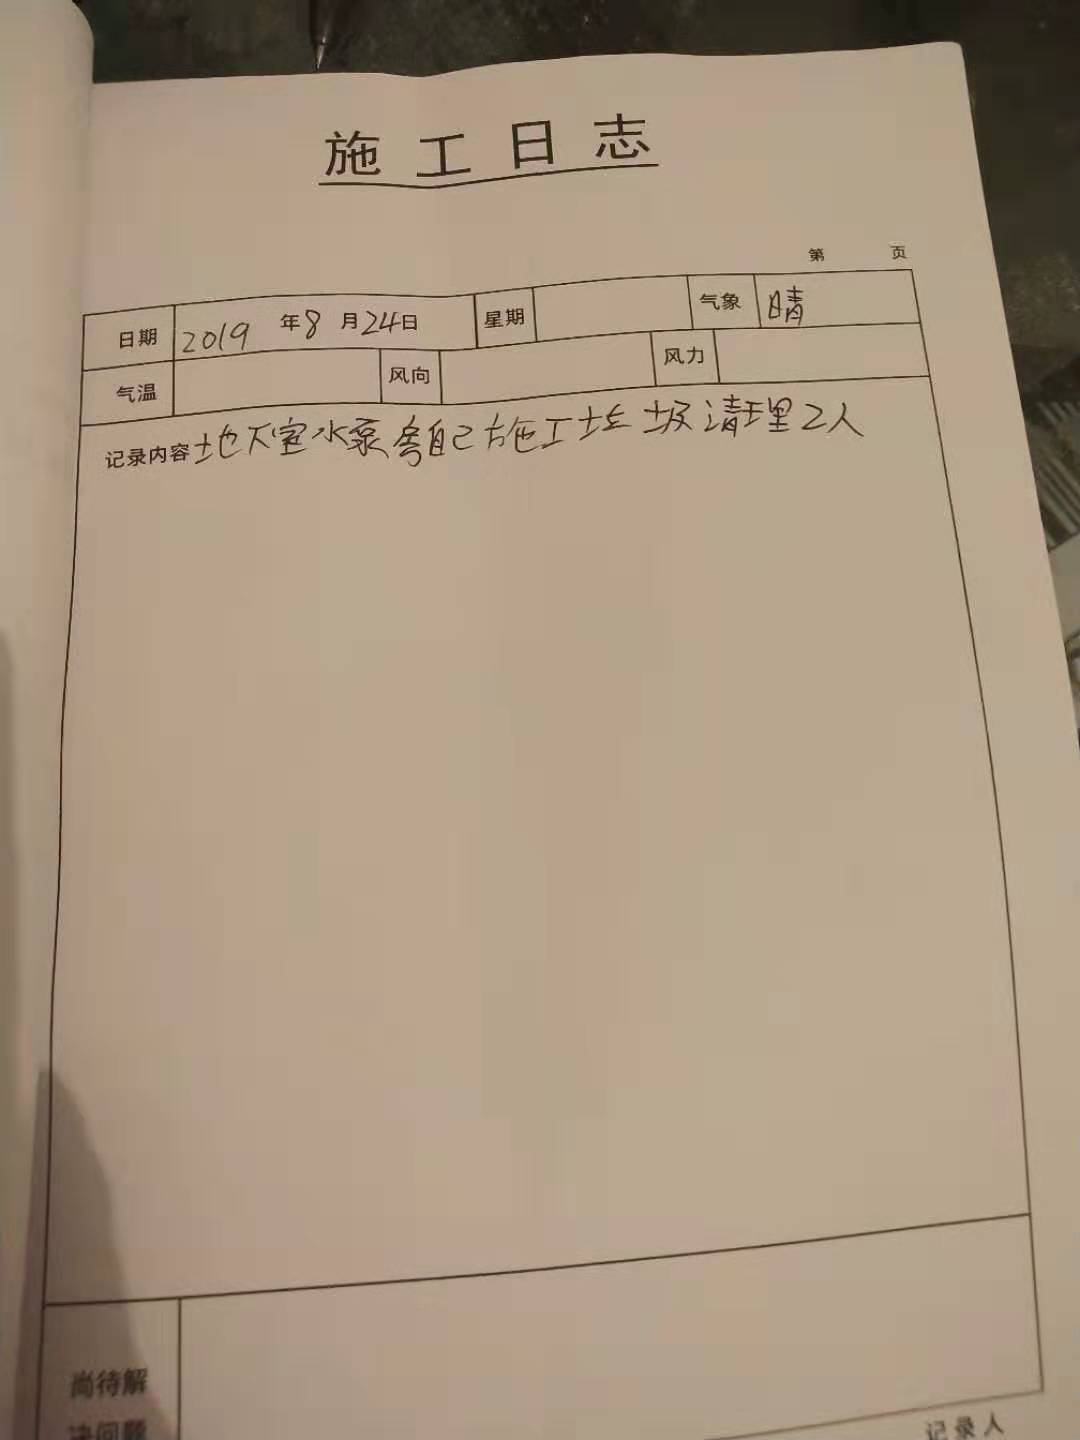 施工日志
第 页
日期 2019 年 8 月 24 日 星期 气象 晴
气温 风向 风力
记录内容 地下室水泵房自己施工垃圾清理2人
尚待解
决问题
记录人